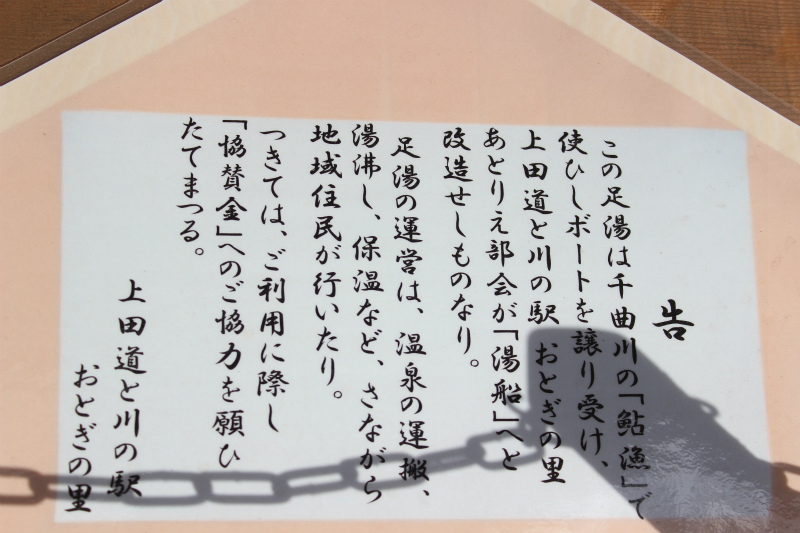 告
この足湯は千曲川の「鮎漁」で
使ひしボートを譲り受け、
上田道と川の駅 おとぎの里
あとりえ部会が「湯船」へと
改造せしものなり。
足湯の運営は、温泉の運搬、
湯沸し、保温など、さながら
地域住民が行いたり。
つきては、ご利用に際し
「協賛金」へのご協力を願ひ
たてまつる。
上田道と川の駅
おとぎの里